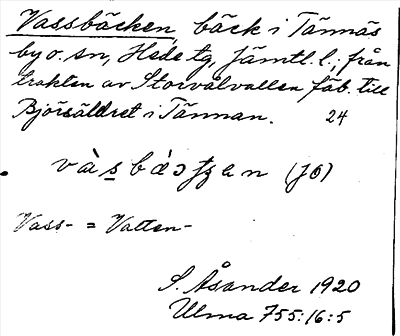 Vassbäcken, bäck i Tännäs
by o. sn, Hede tg, Jämtl. l., från
trakten av Storvålvallen fäb. till
Björsäldret i Tännan. 24
(JO)
Vass- = Vatten-
S. Åsander 1920
Ulma 755:16:5